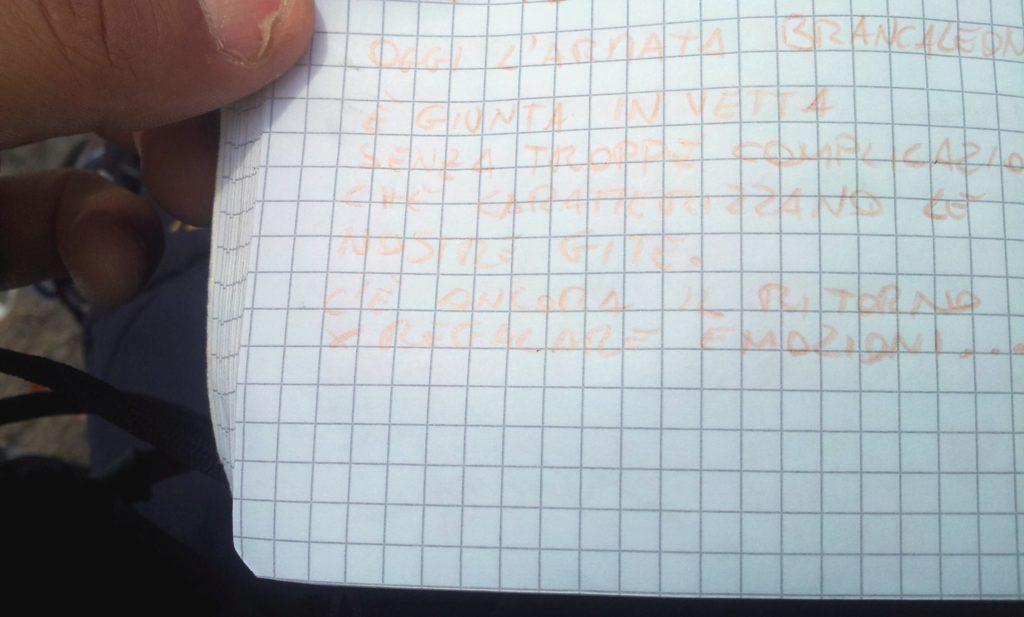 OGGI L'ARMATA BRANCALEON
È GIUNTA IN VETTA
SENZA TROPPE COMPLICAZIO
CHE CARATTERIZZANO LE
NOSTRE GITE.
C'È ANCORA IL RITORNO
X REGALARE EMOZIONI...